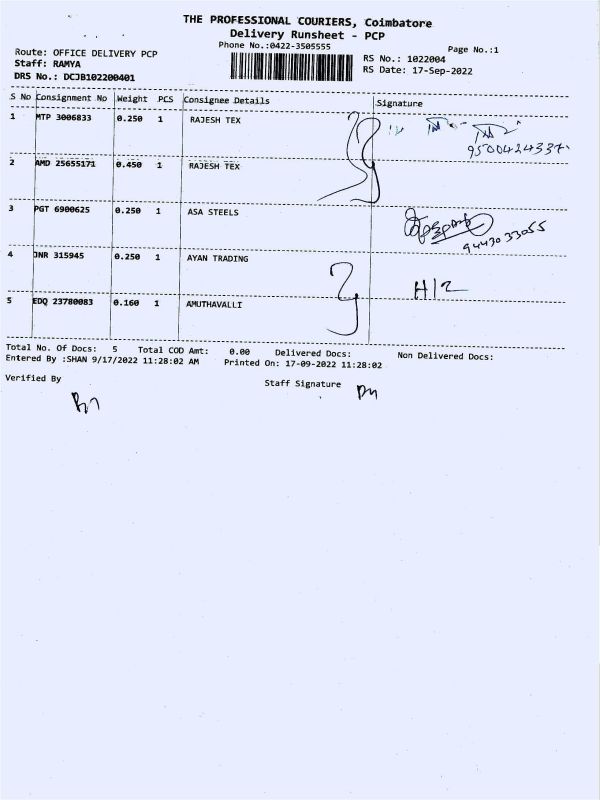 THE PROFESSIONAL COURIERS, Coimbatore
Delivery Runsheet - PCP
Phone No.:0422-3505555
Page No.:1
Route: OFFICE DELIVERY PCP
RS No.: 1022004
Staff: RAMYA
RS Date: 17-Sep-2022
DRS No.: DCJB102200401
S No Consignment No Weight PCS Consignee Details Signature
1 MTP 3006833 0.250 1 RAJESH TEX
9500424337
2 AMD 25655171 0.450 1 RAJESH TEX
3 PGT 6900625 0.250 1 ASA STEELS
9443033055
4 JNR 315945 0.250 1 AYAN TRADING
H/2
5 EDQ 23780083 0.160 1 AMUTHAVALLI
Total No. Of Docs: 5 Total COD Amt: 0.00 Delivered Docs: Non Delivered Docs:
Entered By :SHAN 9/17/2022 11:28:02 AM Printed On: 17-09-2022 11:28:02
Verified By Staff Signature